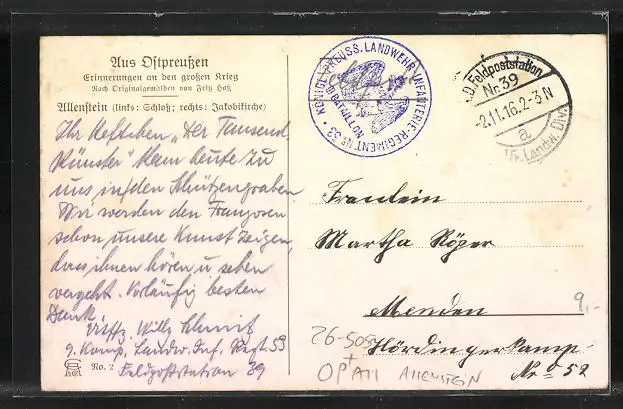 Aus Ostpreußen
Erinnerungen an den großen Krieg
Nach Originalgemälden von Fritz Haß
Allenstein (links: Schloß; rechts: Jakobikirche)
Ihr Heftchen „Der Tausend
Künstler" kam heute zu
uns in den Schützengraben.
Wir werden den Franzosen
schon unsere Kunst zeigen,
dass ihnen hören u sehen
vergeht. Vorläufig besten
Dank
Willy Schmit
9. Komp. Landw. Inf. Regt. 53
Feldpoststation 39
No. 2
KÖNIGL. PREUSS. LANDWEHR-INFANTERIE-REGIMENT No 53
BATAILLON
K.D. Feldpoststation
Nr. 39
-2.11.16.2-3N
a
Landw. Div.
Fraulein
Martha Röper
Menden
Hördingerkamp
Nr 52
9,-
26-505
+
OPAII ALLENSTEIN